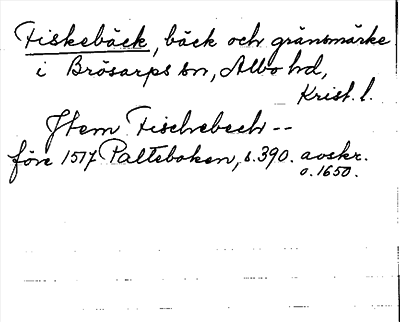 Fiskebäck, bäck och gränsmärke
i Brösarps sn, Albo hd,
Krist. l.
Item Fischebech --
före 1517 Palteboken, s. 390. avskr.
o. 1650.